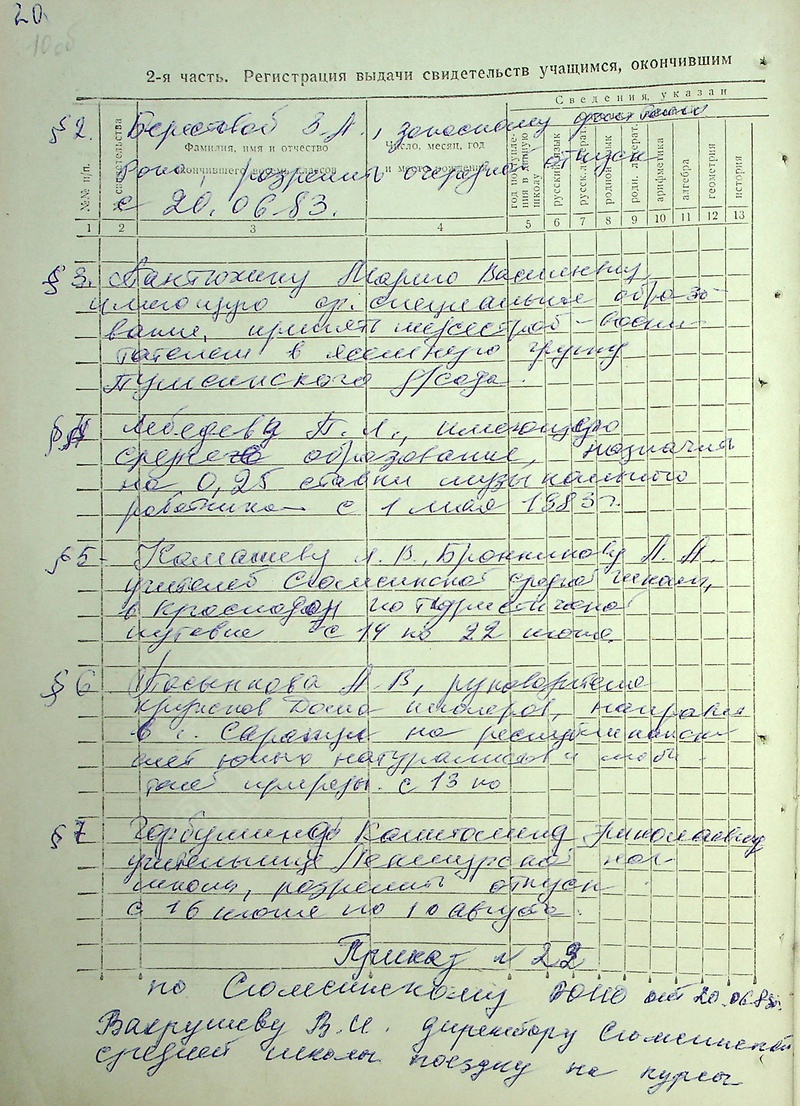 20.
10 об
2-я часть. Регистрация выдачи свидетельств учащимся, окончившим
Сведения, указан
№№ п/п.
свидетельства
Фамилия, имя и отчество
окончившего классов
Число, месяц, год
и место рождения
год поступле-
ния в данную
школу
русский язык
русск. литерат.
родной язык
родн. литерат.
арифметика
алгебра
геометрия
история
1 2 3 4 5 6 7 8 9 10 11 12 13
§ 2. Берестовой З.А., запасному
Роно, разрешить очередной отпуск
с 20.06.83.
§ 3. Пантюхину Марию Васильевну,
имеющую ср. специальное образо-
вание, принять медсестрой-воспи-
тателем в ясельную группу
д/сада.
§ 4 Лебедеву П.А., имеющую
среднее образование, назначить
на 0,25 ставки музыкального
работника с 1 мая 1983 г.
§ 5 - Камашеву А.В., Бронникову А.А.
учителей Сюмсинской средней школы,
в Краснодар по туристической
путевке с 14 по 22 июня.
§ 6 Посынкова А.В., руководителя
кружков Дома пионеров, направить
в г. Сарапул на республиканский
слет юных натуралистов и люби-
телей природы. с 13 по
§ 7 Горбушиной Капитолине Николаевне
учительнице нач.
школы, разрешить отпуск
с 16 июня по 10 августа.
Приказ № 22
по Сюмсинскому РОНО от 20.06.83г.
Вахрушеву В.И. директору Сюмсинской
средней школы поездку на курсы